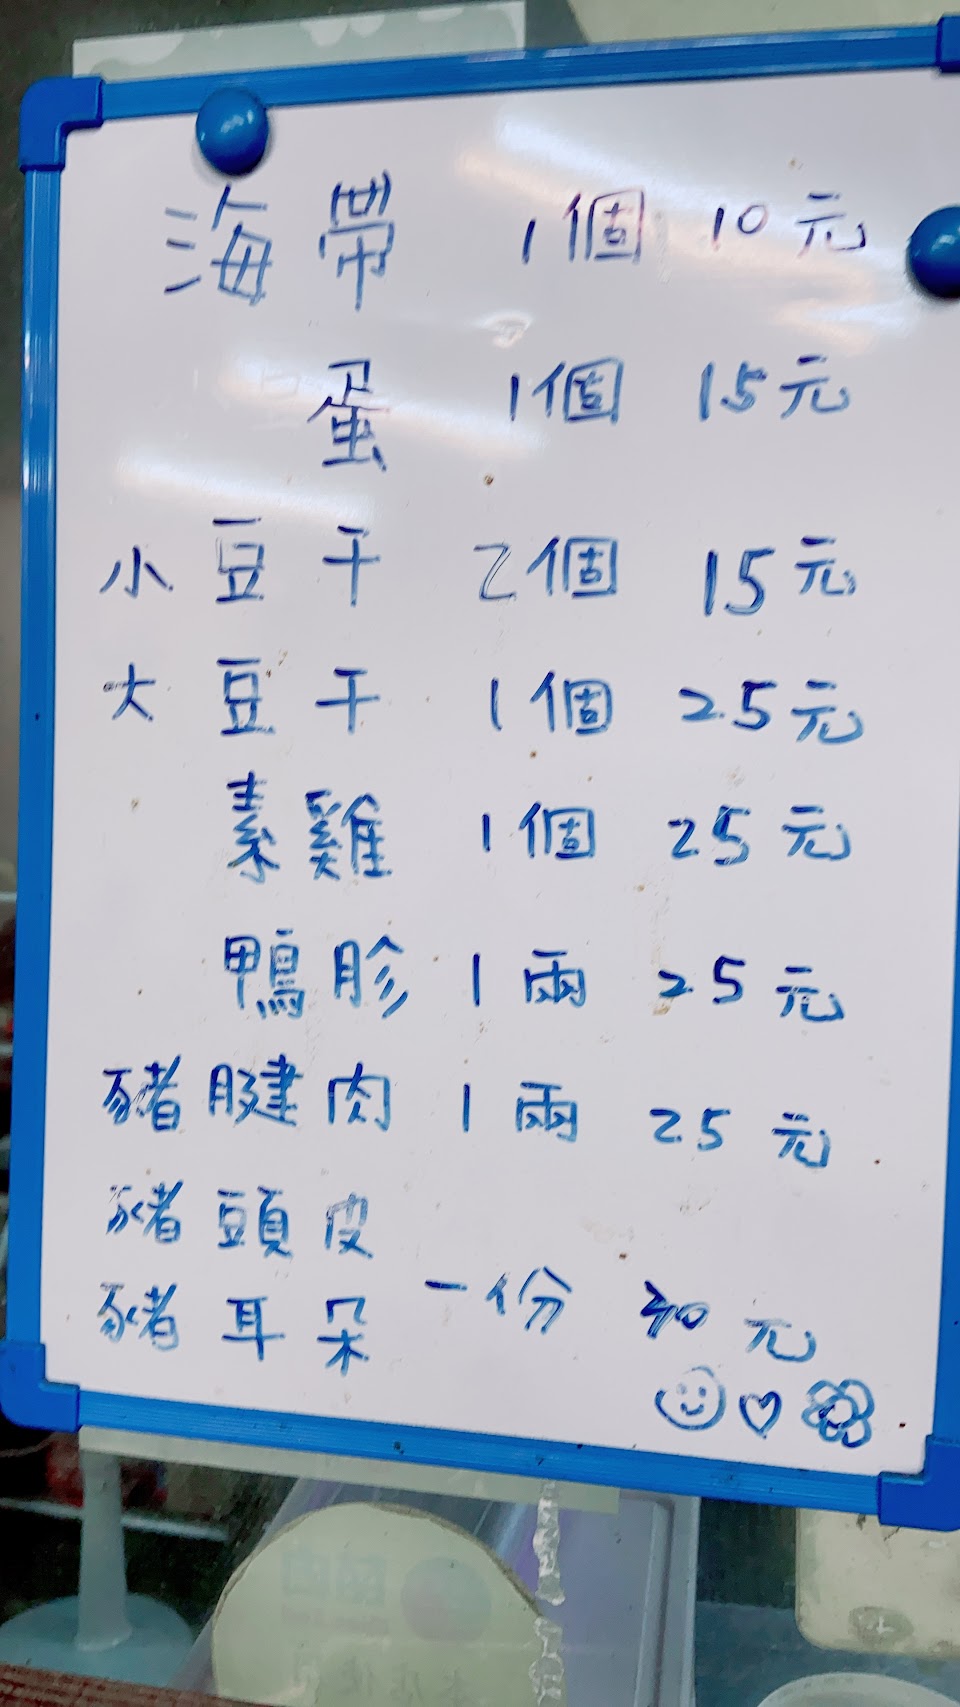 海帶 1個 10元
蛋 1個 15元
小豆干 2個 15元
大豆干 1個 25元
素雞 1個 25元
鴨胗 1兩 25元
豬腱肉 1兩 25元
豬頭皮
豬耳朵 一份 30元